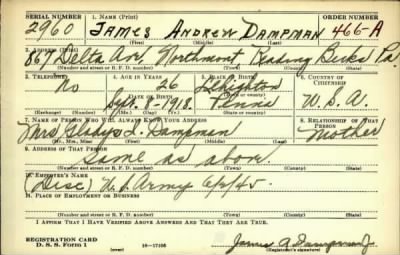 SERIAL NUMBER 1. NAME (Print) ORDER NUMBER
2960 JAMES ANDREW DAMPMAN 466-A
(First) (Middle) (Last)
2. ADDRESS (Print)
867 Delta Ave Northmont Reading Berks Pa.
(Number and street or R. F. D. number) (Town) (County) (State)
3. TELEPHONE 4. AGE IN YEARS 5. PLACE OF BIRTH 6. COUNTRY OF CITIZENSHIP
No 26 Lehighton
DATE OF BIRTH
Sept. 8-1918. Penna U.S.A.
(Exchange) (Number) (Mo.) (Day) (Yr.) (State or country)
7. NAME OF PERSON WHO WILL ALWAYS KNOW YOUR ADDRESS 8. RELATIONSHIP OF THAT PERSON
Mrs Gladys I. Dampman Mother
(Mr., Mrs., Miss) (First) (Middle) (Last)
9. ADDRESS OF THAT PERSON
Same as above.
(Number and street or R. F. D. number) (Town) (County) (State)
10. EMPLOYER'S NAME
(Disc) U.S. Army 6/2/45.
11. PLACE OF EMPLOYMENT OR BUSINESS
(Number and street or R. F. D. number) (Town) (County) (State)
I AFFIRM THAT I HAVE VERIFIED ABOVE ANSWERS AND THAT THEY ARE TRUE.
REGISTRATION CARD
D. S. S. Form 1 16-17105 James A Dampman
(Registrant's signature)